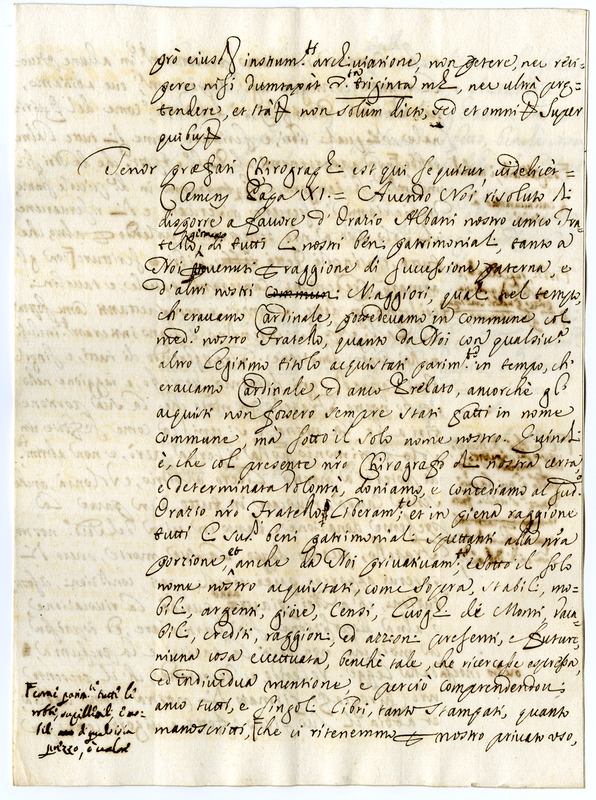 pro eius instrum.ti archiviatione, non petere, nec reci-
pere nisi dumtaxat triginta m.ta, nec ultra pre-
tendere, et ità non solum dicto, sed et omni super
quibus
Tenor præfati Chirographi est qui sequitur, videlicèt =
Clemens Papa XI. = Avendo Noi risoluto di
disporre a favore d'Orazio Albani nostro unico Fra-
tello di tutti li nostri beni patrimoniali, tanto a
Noi pervenuti raggione di successione paterna, e
d'altri nostri Maggiori, quali nel tempo,
ch'eravamo Cardinale, possedevamo in commune col
med.o nostro Fratello, quanto da Noi con qualsiv.a
altro legitimo titolo acquistati parim.te in tempo, ch'
eravamo Cardinale, ed anco Prelato, ancorchè gl'
acquisti non fossero sempre stati fatti in nome
commune, ma sotto il solo nome nostro. Quindi
è, che col presente nr̃o Chirografo di nostra certa,
e determinata volontà, doniamo, e concediamo al sud.o
Orazio nr̃o Fratello liberam.te, et in piena raggione
tutti li sud.i beni patrimoniali spettanti alla nr̃a
porzione, et anche da Noi privativam.te, e sotto il solo
nome nostro acquistati, come sopra, stabili, mo-
bili, argenti, gioie, Censi, luoghi de Monti, vaca-
bili, crediti, raggioni, ed azzioni presenti, e future,
niuna cosa eccettuata, benchè tale, che ricercasse espressa,
ed individua mentione, e perciò comprendendovi
anco tutti, e singoli libri, tanto stampati, quanto
manoscritti, che ci ritenemmo nostro privato uso,
come parim.ti tutti li
prezzo, ò valore